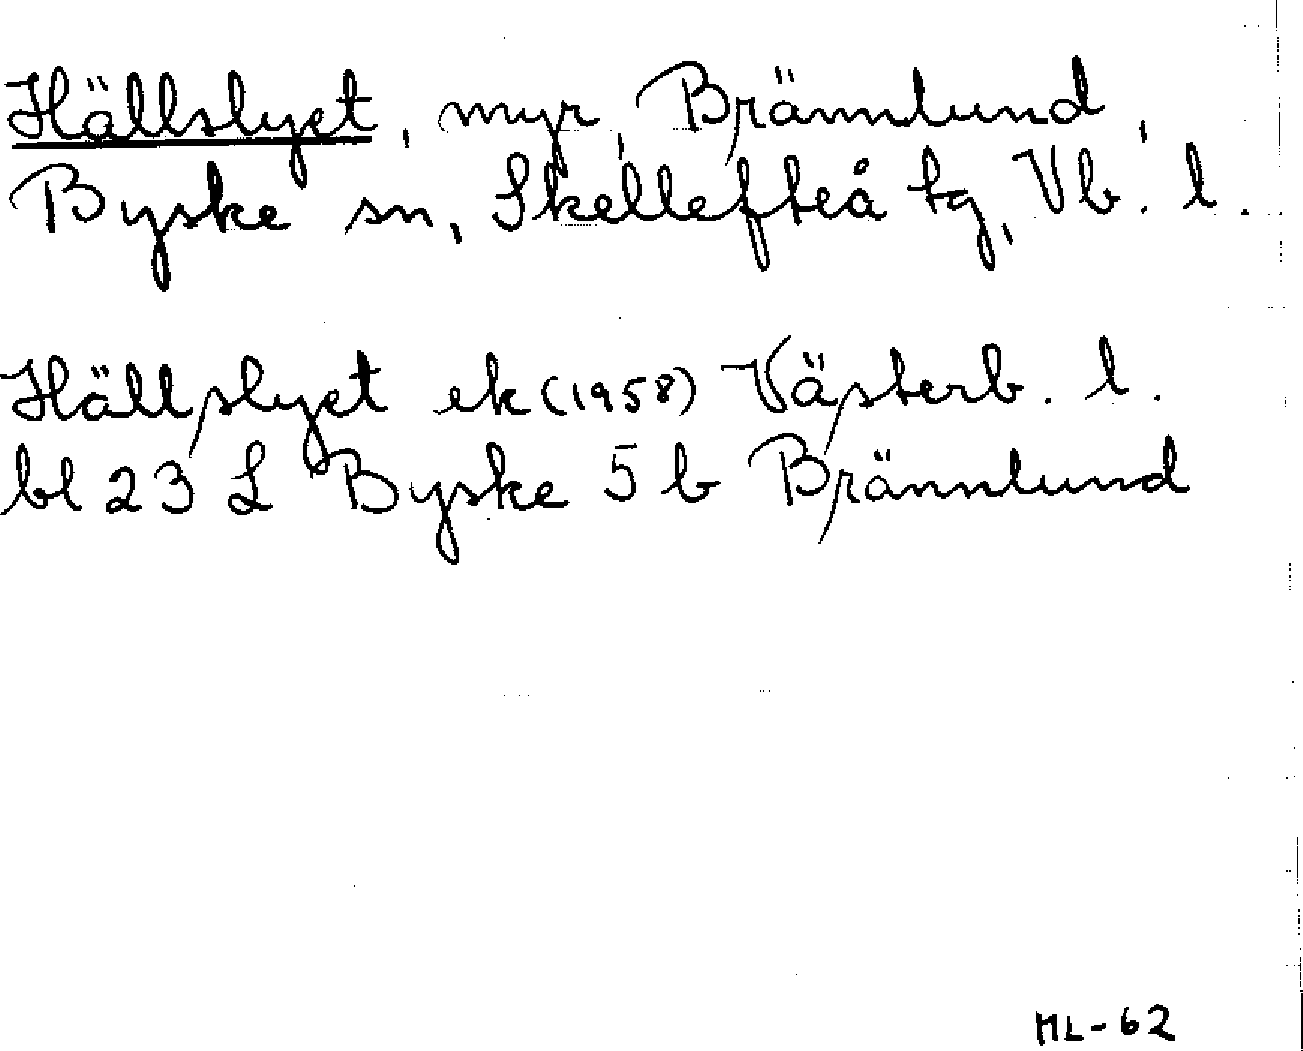 Hällslyet, myr, Brännlund,
Byske sn, Skellefteå tg, Vb. l.
Hällslyet ek (1958) Västerb. l.
bl 23 L Byske 5 b Brännlund
ML-62